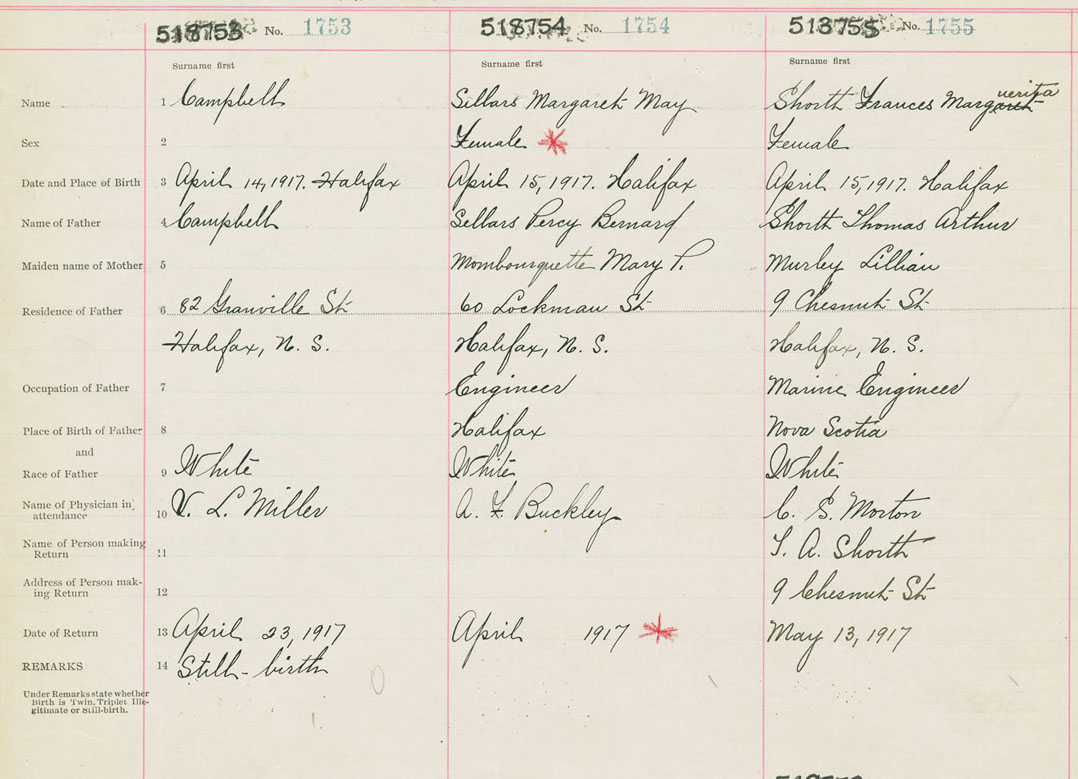 518753 No. 1753 518754 No. 1754 518755 No. 1755
Surname first Surname first Surname first
Name 1 Campbell Sellars Margaret May Shorth Frances Margaret uerita
Sex 2 Female Female
Date and Place of Birth 3 April 14, 1917. Halifax April 15, 1917. Halifax April 15, 1917. Halifax
Name of Father 4 Campbell Sellars Percy Bernard Shorth Thomas Arthur
Maiden name of Mother 5 Mombourquette Mary P. Murley Lillian
Residence of Father 6 82 Granville St 60 Lockman St 9 Chesnut St
Halifax, N. S. Halifax, N. S. Halifax, N. S.
Occupation of Father 7 Engineer Marine Engineer
Place of Birth of Father 8 Halifax Nova Scotia
and
Race of Father 9 White White White
Name of Physician in attendance 10 V. L. Miller A. F Buckley C. S. Morton
Name of Person making Return 11 T. A. Shorth
Address of Person mak-ing Return 12 9 Chesnut St
Date of Return 13 April 23, 1917 April 1917 May 13, 1917
REMARKS 14 Still-birth
Under Remarks state whether
Birth is Twin, Triplet Ille-
gitimate or Still-birth.